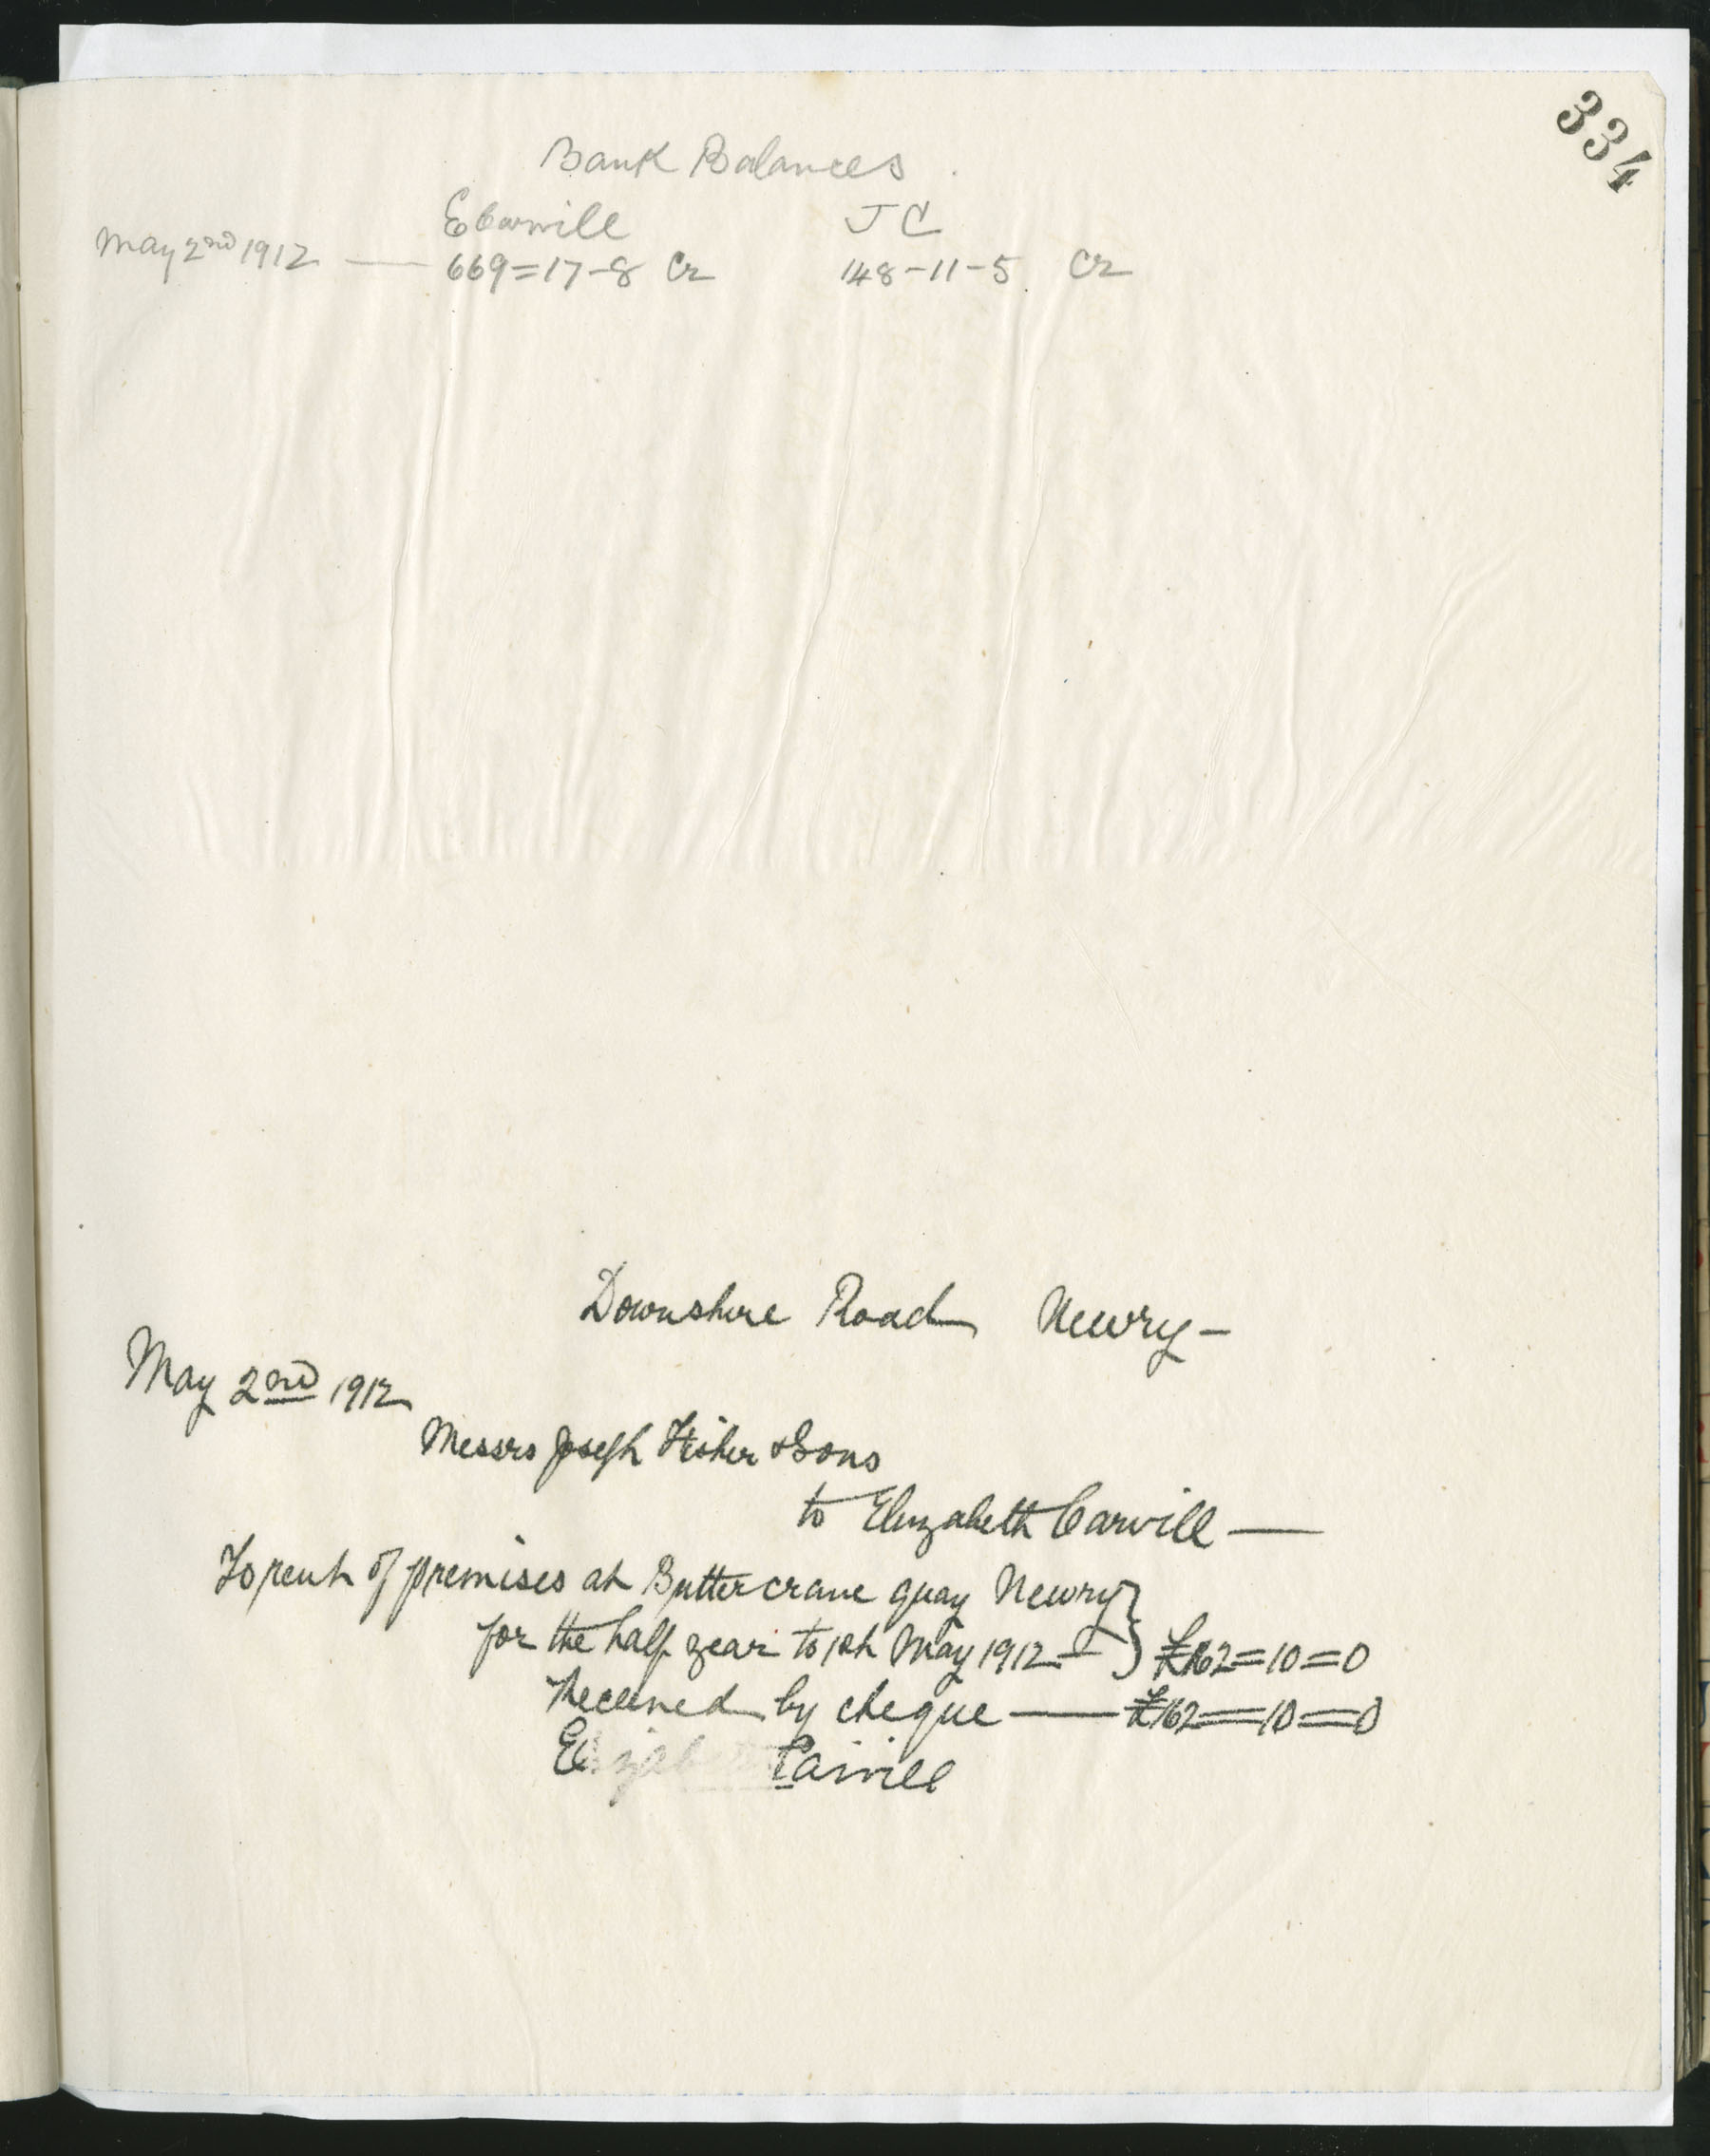 334
Bank Balances
ECarvill J C
May 2nd 1912 — 669=17-8 Cr 148-11-5 Cr
Downshire Road Newry —
May 2nd 1912
Messrs Joseph Fisher & Sons
to Elizabeth Carvill —
To rent of premises at Buttercrane quay Newry }
for the half year to 1st May 1912 — } £162=10=0
Received by cheque — £162=10=0
Elizabeth Carvill